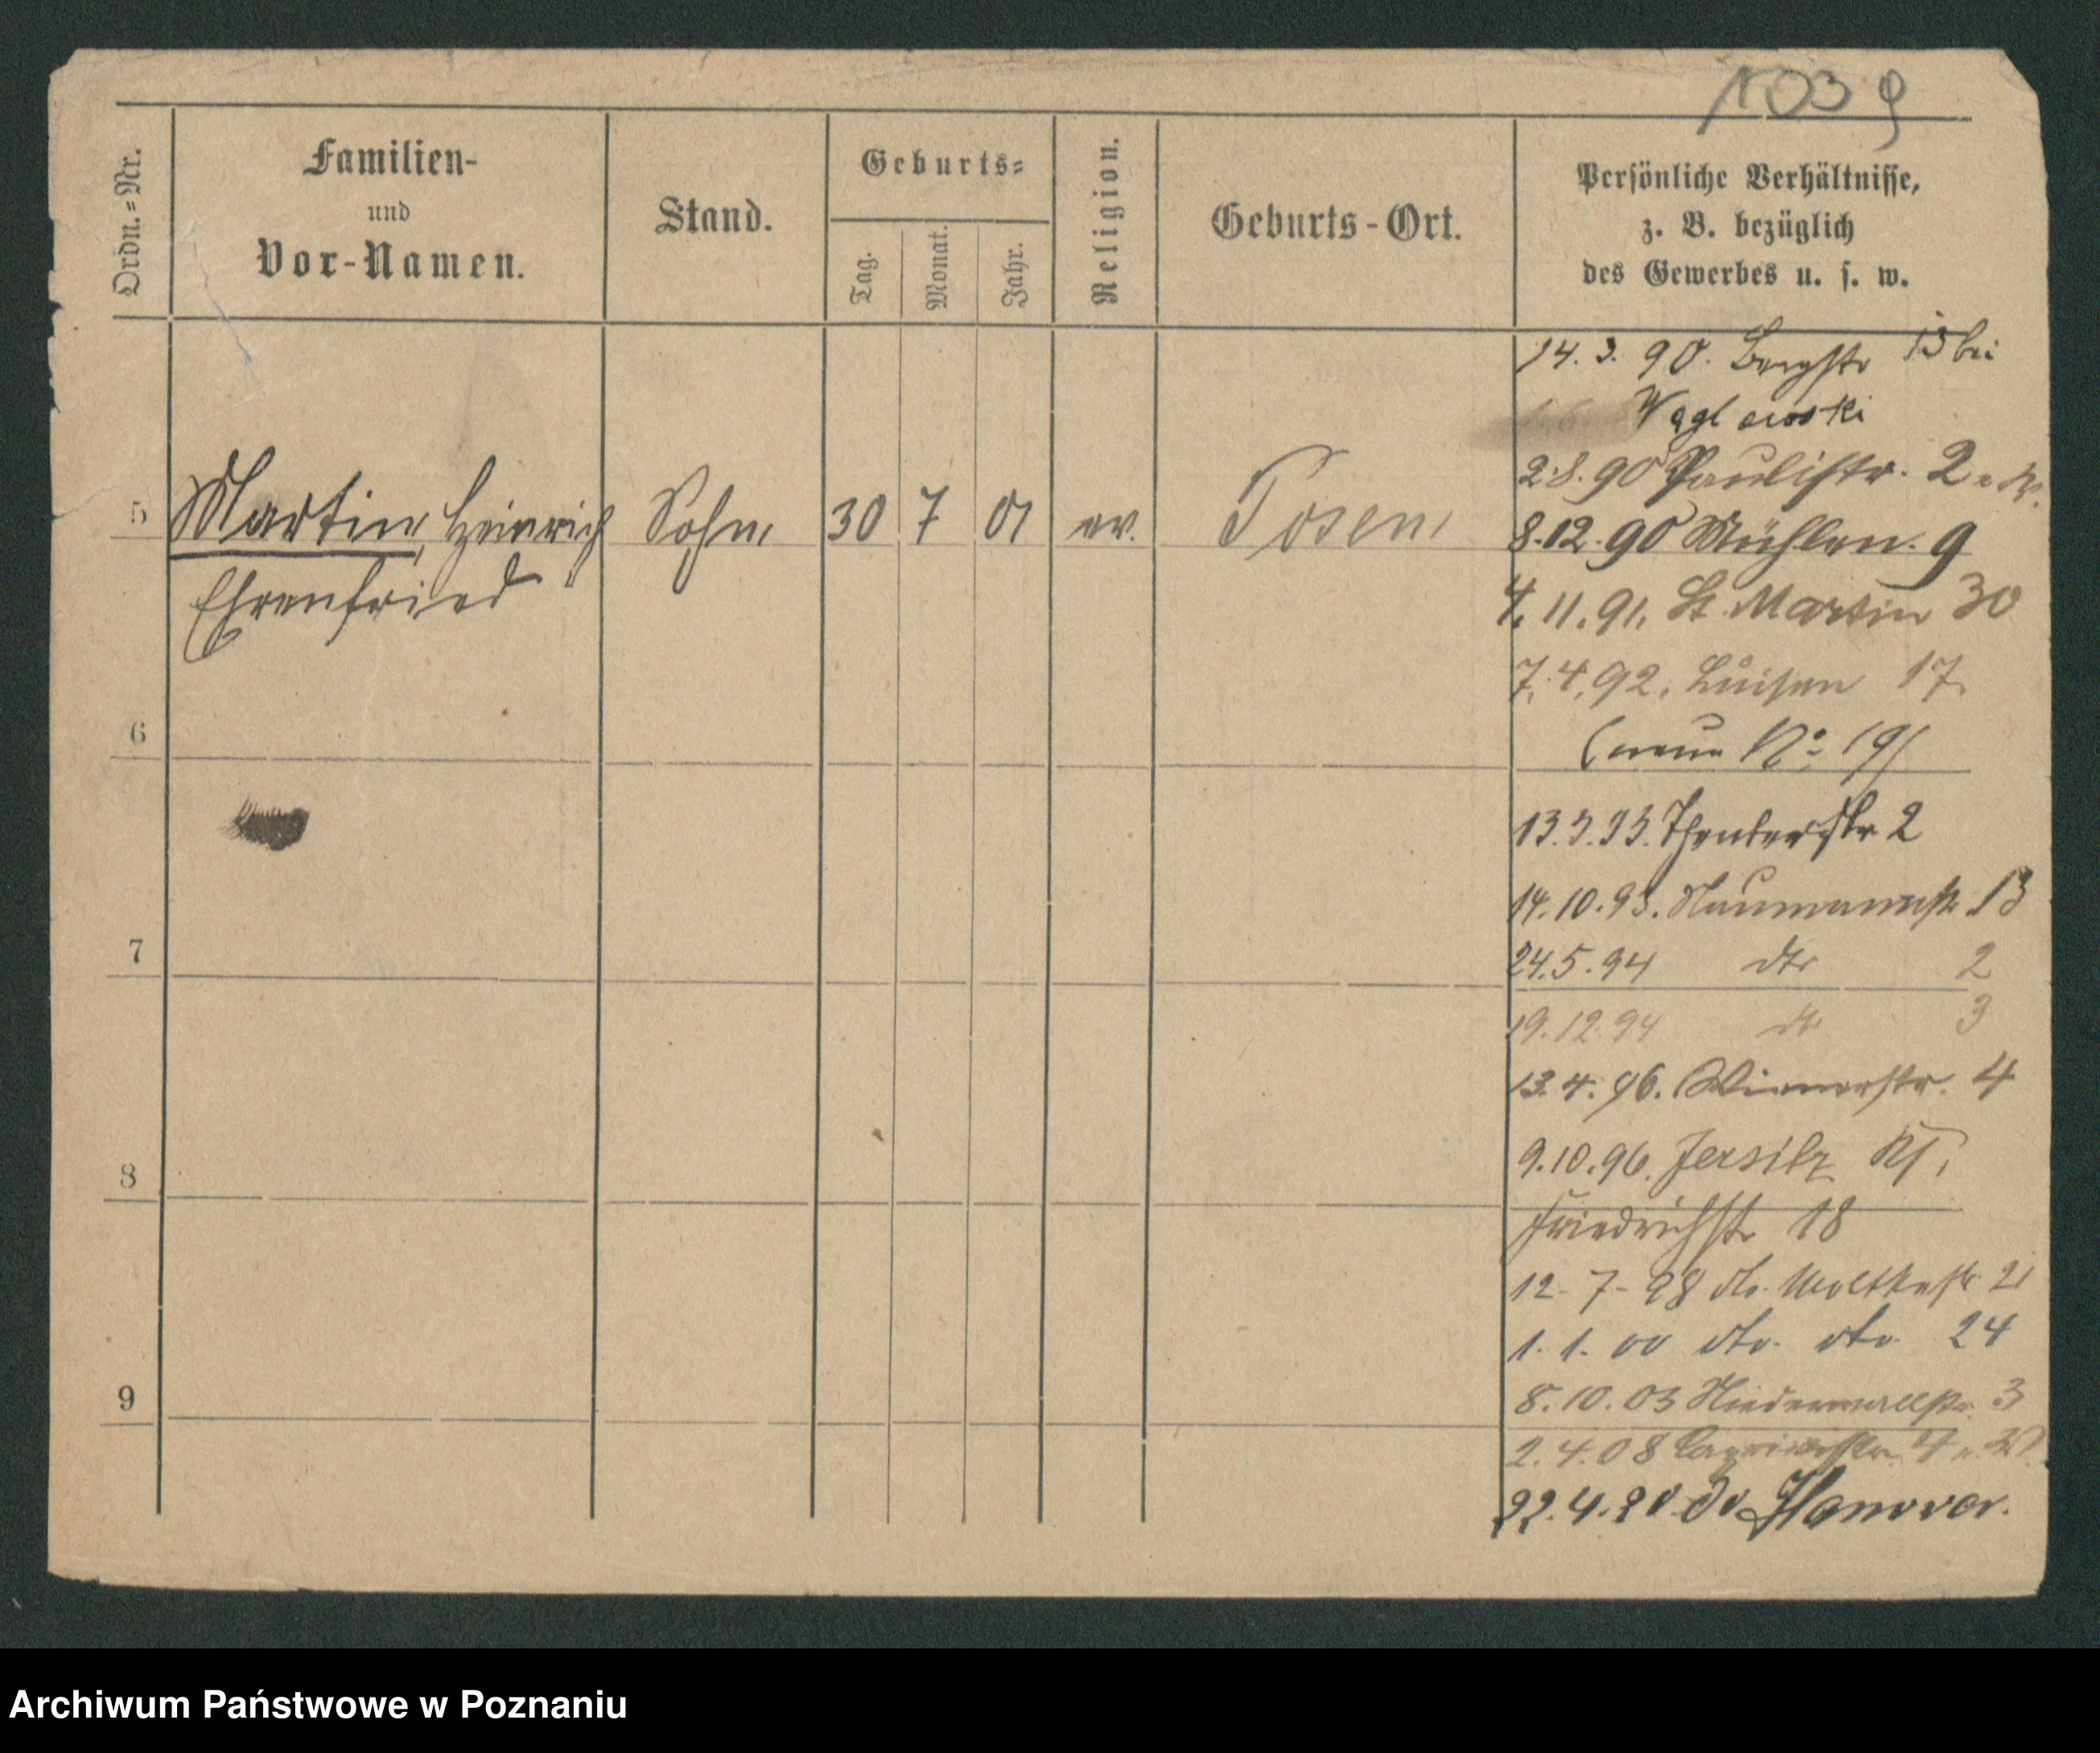 1039
Ordn.=Nr.
Familien-
und
Vor-Namen.
Stand.
Geburts=
Tag.
Monat.
Jahr.
Religion.
Geburts-Ort.
Persönliche Verhältnisse,
z. B. bezüglich
des Gewerbes u. s. w.
14. 3. 90. Bergstr 13 bei
2.8.90 Paulistr. 2
5 Martin, Heinrich Sohn 30 7 01 ev. Posen
8.12.90 Mühlen. 9
Ehrenfried
4.11.91. St. Martin 30
7.4.92. Luisen 17
6
(neue No: 19)
13.3.93. Theaterstr 2
14.10.93. Naumannstr. 13
7
24.5.94 dto 2
19.12.94 dto 3
13.4.96. Wienerstr. 4
8
9.10.96. Jersitz
Friedrichstr 18
12-7-98 do. Moltkestr. 21
1.1.00 dto. dto. 24
9
8.10.03 Niederwallstr. 3
2.4.08
22.4.20. Hanover.
Archiwum Państwowe w Poznaniu